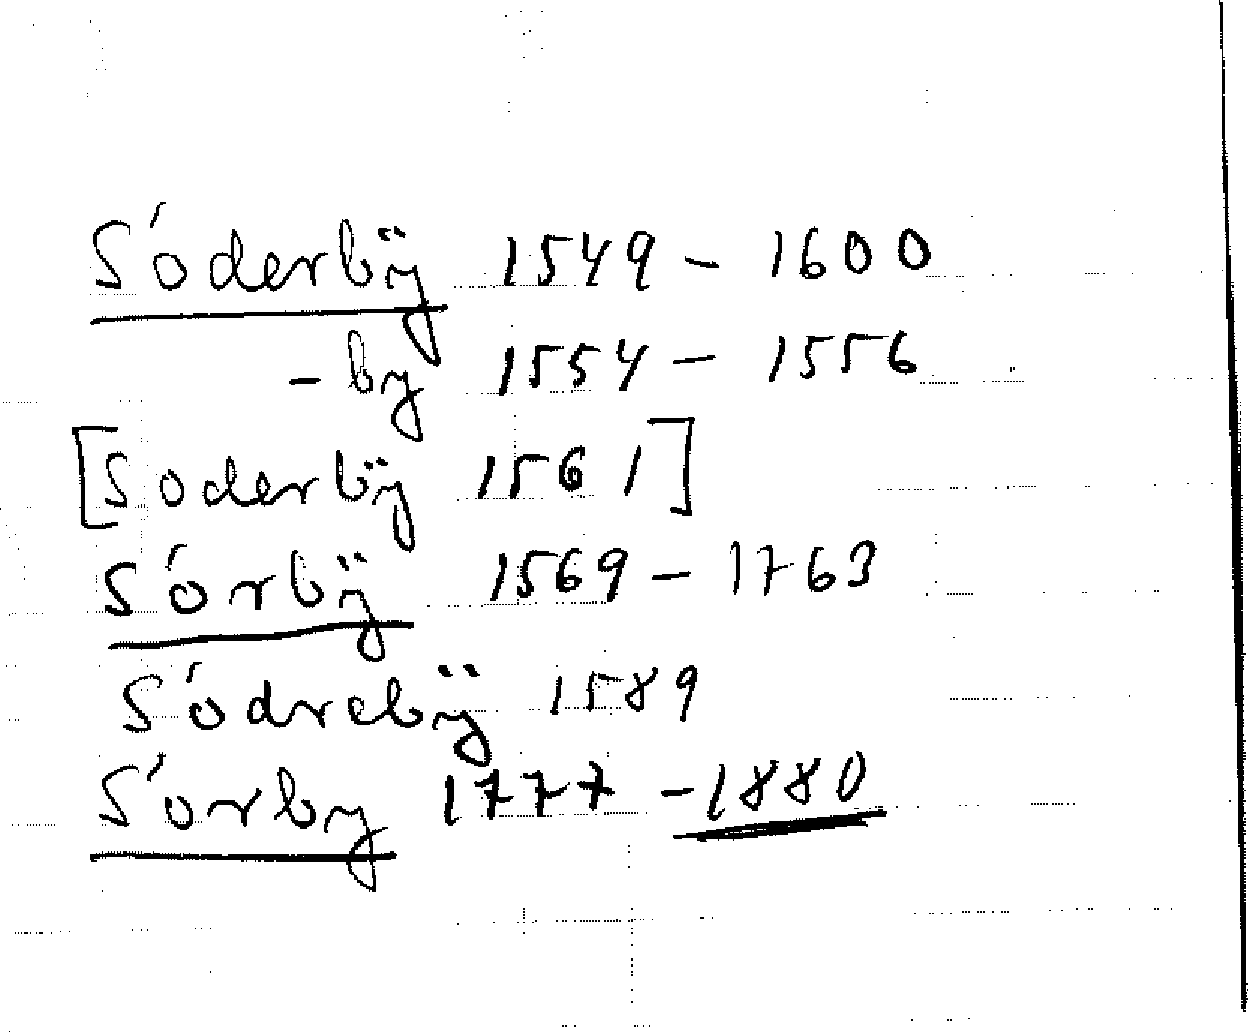 Söderbÿ 1549 - 1600
- by 1554 - 1556
[Soderbÿ 1561]
Sörbÿ 1569 - 1763
Södrebÿ 1589
Sörby 1777 - 1880